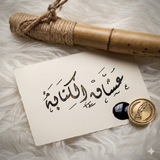 عشاق الكتابة